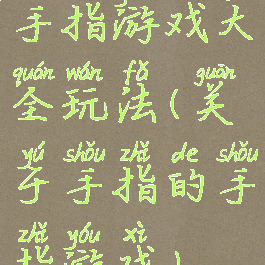 手指游戏大
quán wán fǎ guān
全玩法(关
yú shǒu zhǐ de shǒu
于手指的手
zhǐ yóu xì
指游戏)